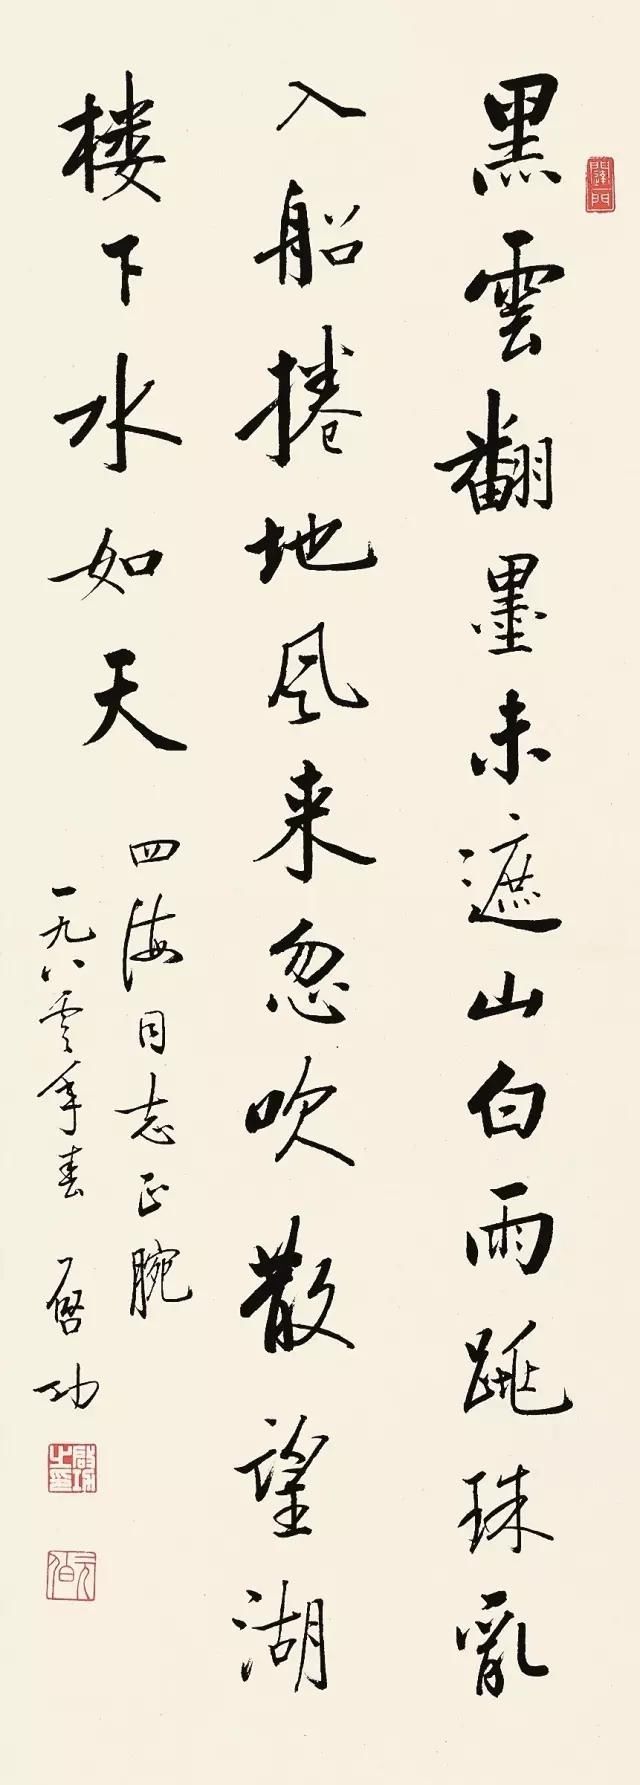 黑雲翻墨未遮山白雨跳珠亂
入船捲地风来忽吹散望湖
楼下水如天
四海同志正腕
一九八零年春 啓功
啟功之印
元白